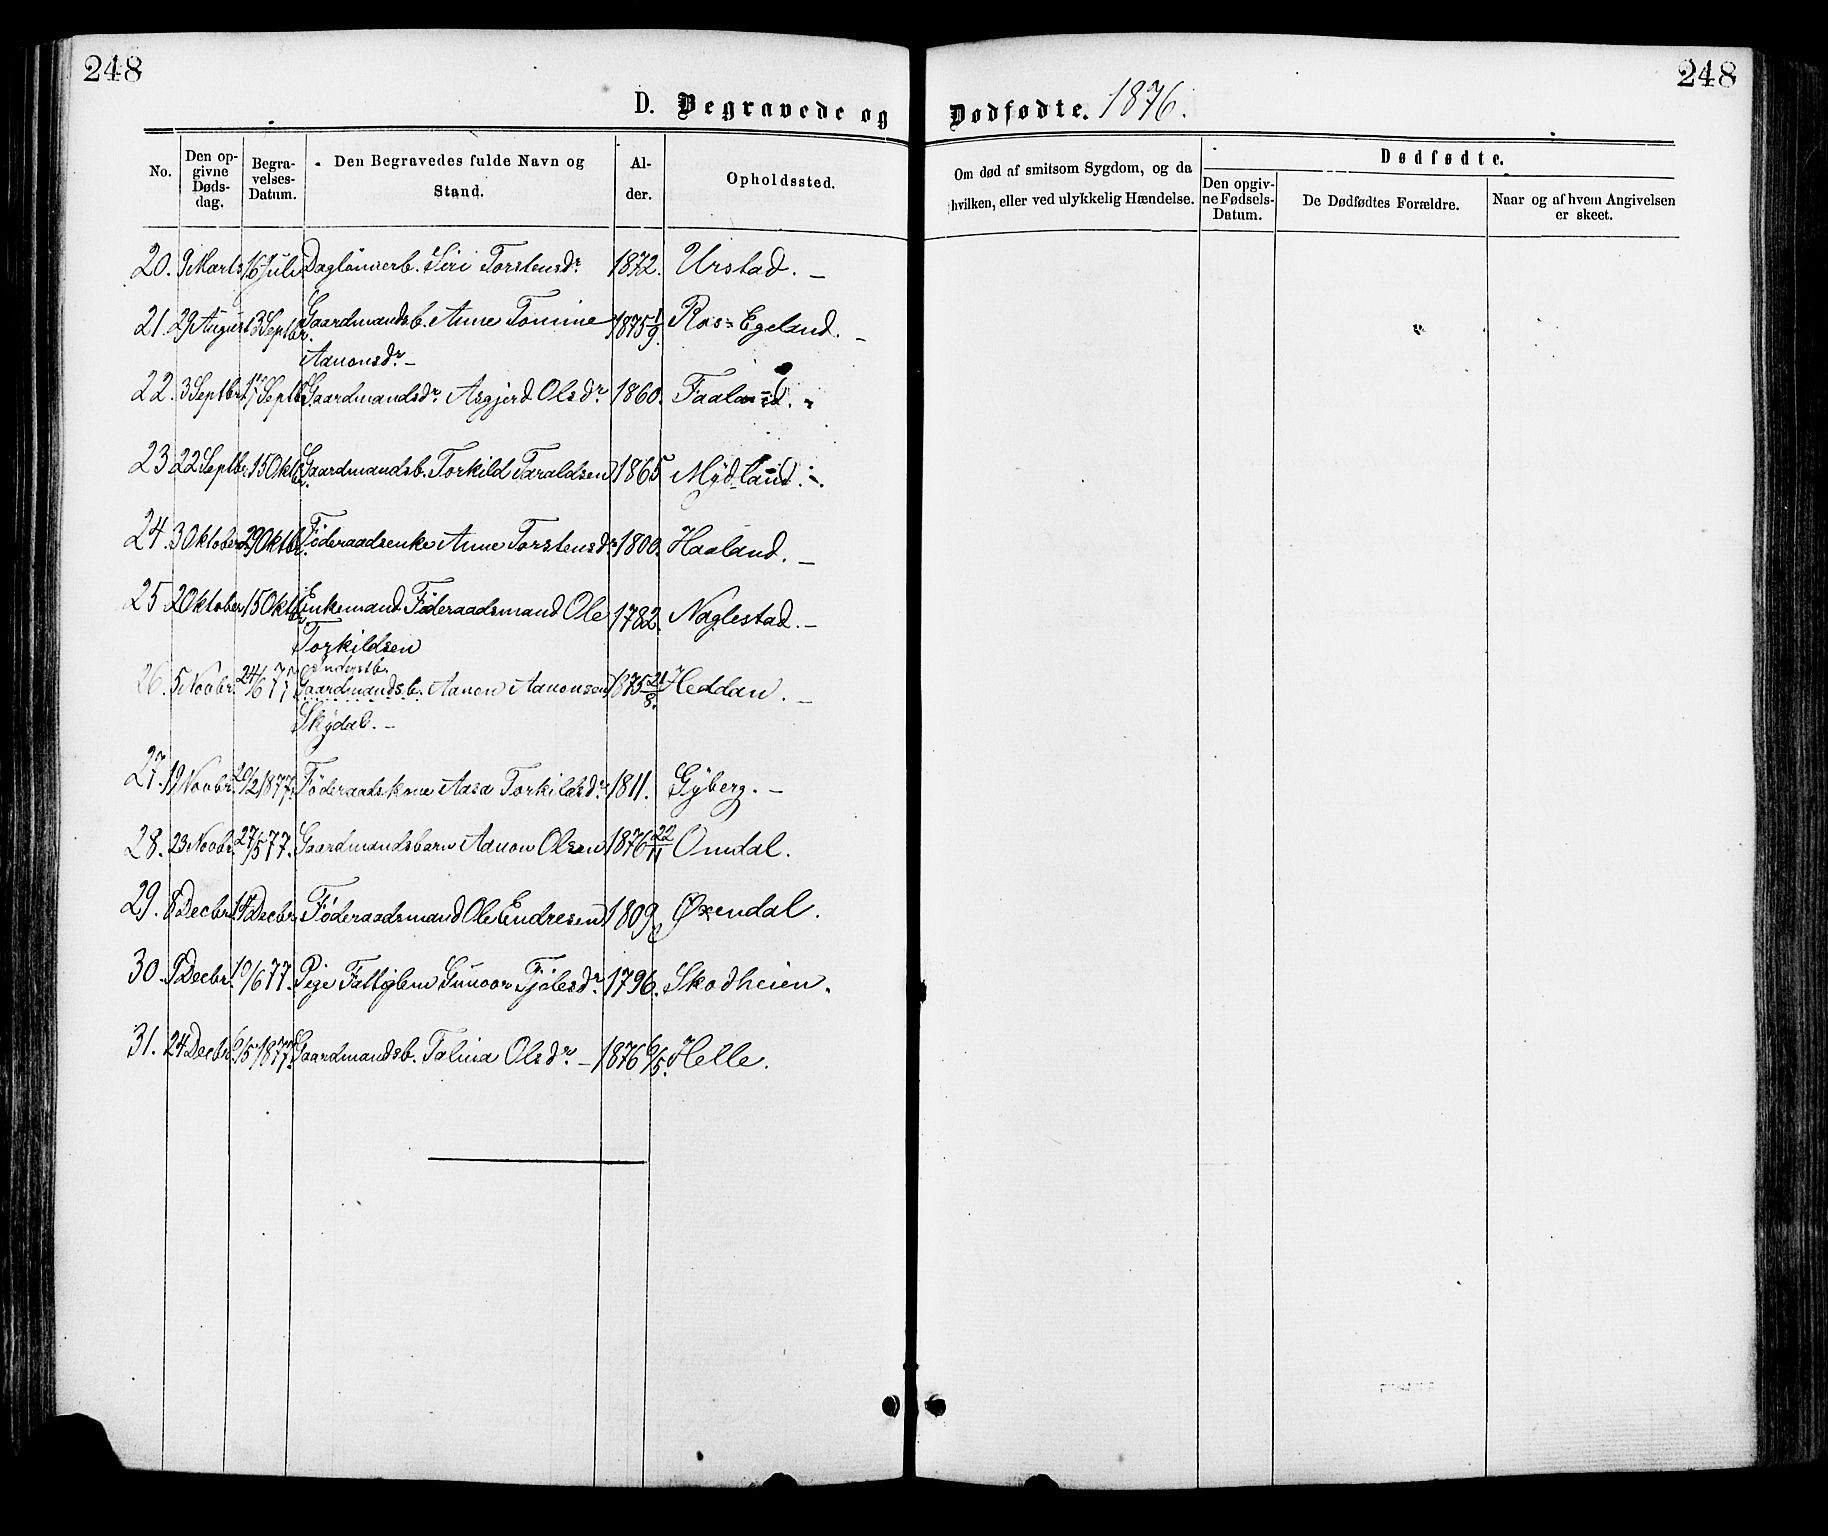 248
248
D. Begravede og Dødfødte. 1876.
No.
Den opgivne Dødsdag.
Begravelses-Datum.
Den Begravedes fulde Navn og Stand.
Alder.
Opholdssted.
Om død af smitsom Sygdom, og da hvilken, eller ved ulykkelig Hændelse.
Dødfødte.
Den opgivne Fødsels-Datum.
De Dødfødtes Forældre.
Naar og af hvem Angivelsen er skeet.
20. 9 Marts 16 Juli Daglönnerb. Siri Torstensdr 1872. Urstad. –
21. 29 August 3 Septbr. Gaardmandsb. Anne Tomine 1875 1/9. Ros-Egeland. –
Aanonsdr –
22. 3 Septbr. 17 Septbr. Gaardmandsdr Asgjerd Olsdr 1860. Faaland.
23 22 Septbr. 15 Oktbr. Gaardmandsb. Torkild Taraldsen 1865 Mydland. –
24. 3 Oktober 29 Oktbr. Föderaadsenke Anne Torstensdr 1800. Haaland. –
25 2 Oktober 15 Oktbr Enkemand Föderaadsmand Ole 1782. Noglestad. –
Torkildsen
Inderstb.
26. 5 Novbr. 24/6 77 Gaardmandsb. Aanon Aanonsen 1875 21/8. Heddan. –
Skydal. –
27. 19 Novbr. 20/2 1877. Föderaadskone Aasa Torkildsdr 1811. Gyberg. –
28. 23 Novbr. 27/5 77. Gaardmandsbarn Aanon Olsen 1876 22/11 Omdal.
29. 8 Decbr. 14 Decbr. Föderaadsmand Ole Endresen 1809 Øxendal.
30. 9 Decbr. 10/6 77. Pige Fattiglem Gunvor Tjölesdr 1796. Skodheien.
31. 24 Decbr. 6/5 1877. Gaardmandsb. Talina Olsdr – 1876 6/5. Helle.